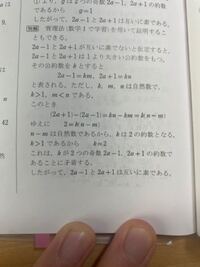 ①より,gは2つの奇数2a-1, 2a+1の約数
であるから g=1
したがって,2a-1と2a+1は互いに素である。
別解 背理法(数学Ⅰで学習)を用いて証明するこ
ともできる。
2a-1と2a+1が互いに素でないと仮定すると,
2a-1と2a+1は1より大きい公約数をもつ。
その公約数をkとすると
2a-1=km, 2a+1=kn
と表される。ただし,k, m, nは自然数で,
k>1, m<nである。
このとき
(2a+1)-(2a-1)=kn-km=k(n-m)
ゆえに 2=k(n-m)
n-mは自然数であるから,kは2の約数となる。
k>1であるから k=2
これは,kが2つの奇数2a-1, 2a+1の約数で
あることに矛盾する。
したがって,2a-1と2a+1は互いに素である。
42